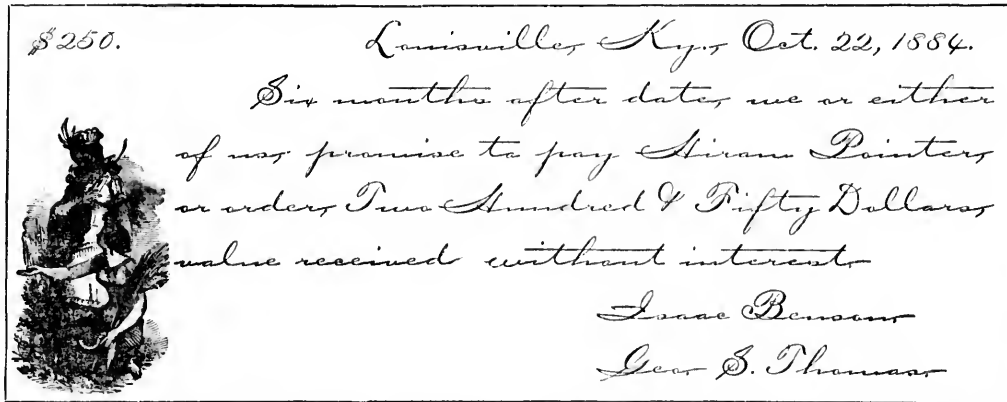 $250. Louisville, Ky., Oct. 22, 1884.
Six months after date, we or either
of us, promise to pay Hiram Pointer,
or order, Two Hundred & Fifty Dollars,
value received without interest.
Isaac Benson.
Geo. S. Thomas.